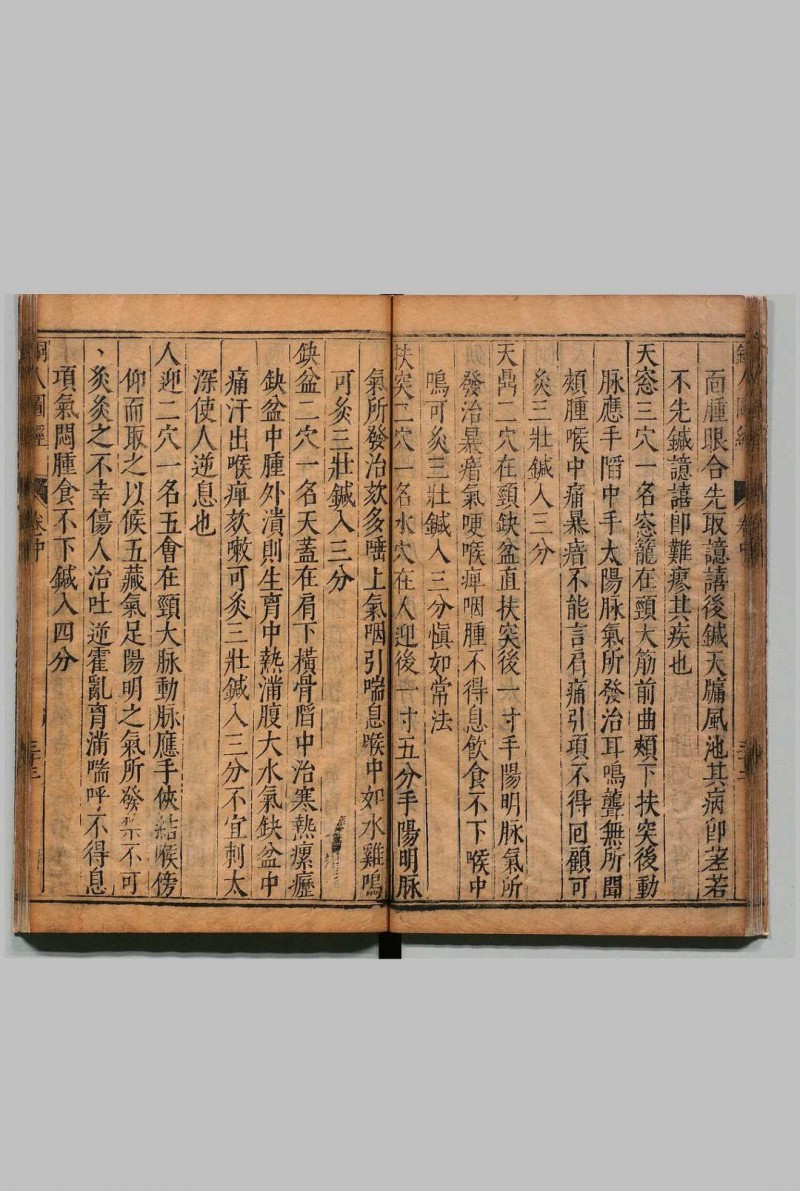 面腫眼合先取譩譆後鍼天牖風池其病卽差若
不先鍼譩譆卽難瘳其疾也
天窓二穴一名窓籠在頸大筋前曲頰下扶突後動
脉應手䧟中手太陽脉氣所發治耳鳴聾無所聞
頰腫喉中痛暴瘖不能言肩痛引項不得回顧可
灸三壯鍼入三分
天鼎二穴在頸缺盆直扶突後一寸手陽明脉氣所
發治暴瘖氣哽喉痺咽腫不得息飲食不下喉中
鳴可灸三壯鍼入三分愼如常法
扶突二穴一名水穴在人迎後一寸五分手陽明脉
氣所發治欬多唾上氣咽引喘息喉中如水雞鳴
可灸三壯鍼入三分
缺盆二穴一名天蓋在肩下橫骨䧟中治寒熱瘰癧
缺盆中腫外潰則生胷中熱滿腹大水氣缺盆中
痛汗出喉痺欬嗽可灸三壯鍼入三分不宜刺太
深使人逆息也
人迎二穴一名五會在頸大脉動脉應手俠結喉傍
仰而取之以候五藏氣足陽明之氣所發禁不可
灸灸之不幸傷人治吐逆霍亂胷滿喘呼不得息
項氣悶腫食不下鍼入四分
銅人圖經 卷中